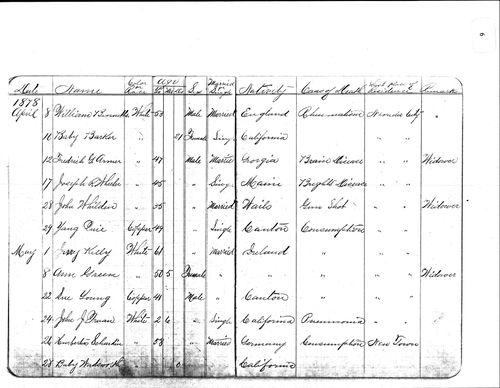 9
Date Name Color or Race Age Yr Mo Ds Sex Married Single Nativity Cause of Death Last place of Residence Remarks
1878
April 8 William White 50 Male Married England Rheumatism Nevada City "
10 Baby Barker " 21 Female Sing California " "
12 Fredrick G " 47 Male Married Georgia Brain Disease " " Widower
17 Joseph R Wheeler " 45 " Sing Maine Brights Disease " "
28 John Whilden " 55 " Married Wails Gun Shot " " Widower
29 Yang Copper 44 " Single Canton Consumption " "
May 1 Jerry Kelly White 61 " Married Ireland " " "
8 Ann Green " 50 5 Female " " " " " Widower
22 Sue Young Copper 41 Male " Canton " " "
24 John J White 2 6 " Single California Pneumonia " "
26 " 58 " Married Germany Consumption New Town
28 Baby " 0 California